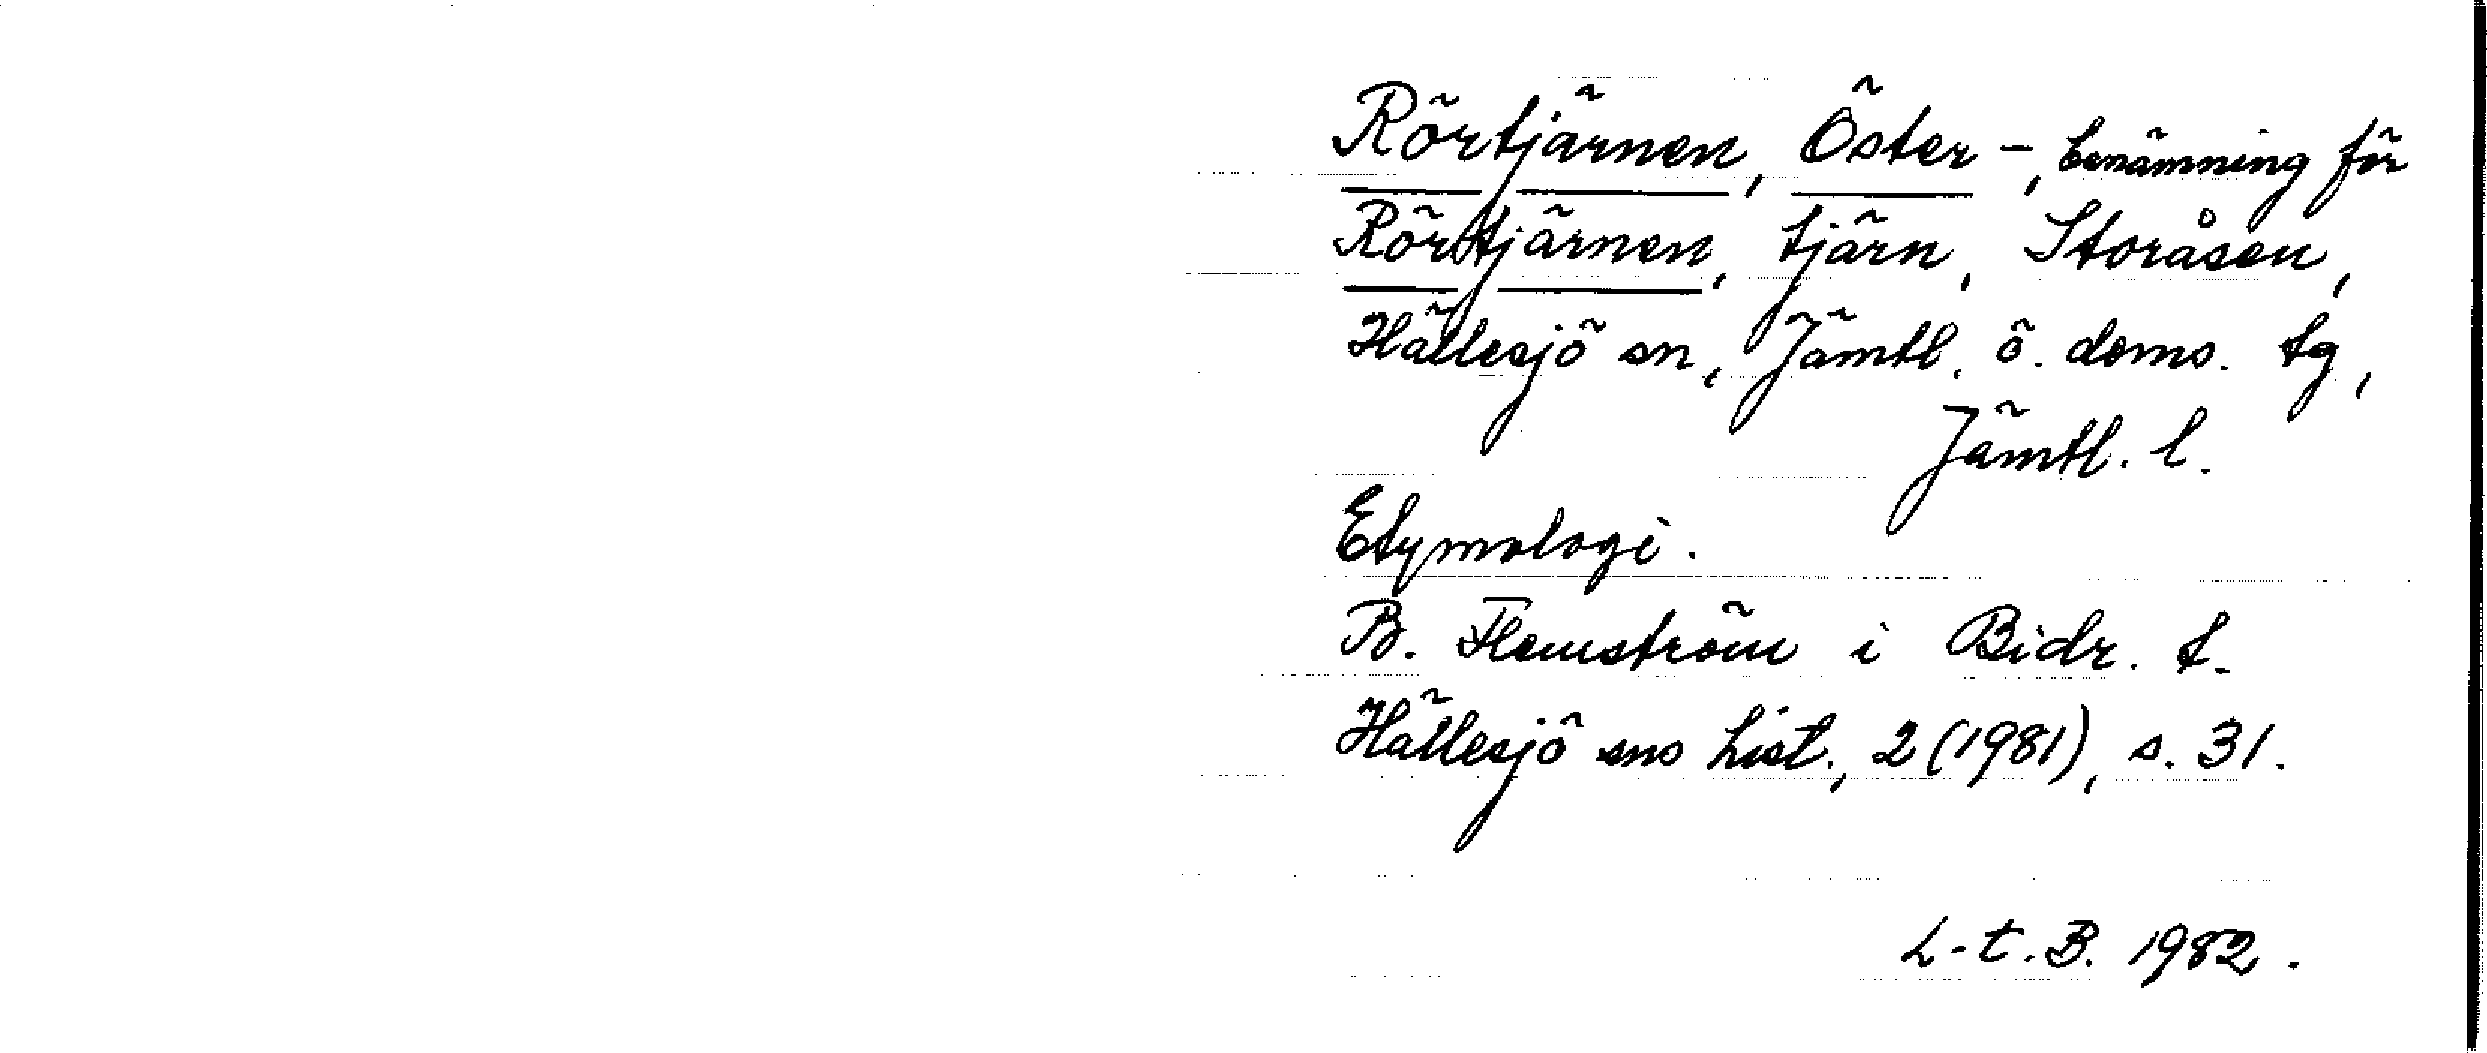 Rörtjärnen, Öster -, benämning för
Rörtjärnen, tjärn, Storåsen,
Hällesjö sn, Jämtl. ö. doms. tg,
Jämtl. l.
Etymologi.
B. Flemström i Bidr. t.
Hällesjö sns hist., 2 (1981), s. 31.
L-t. B. 1982.